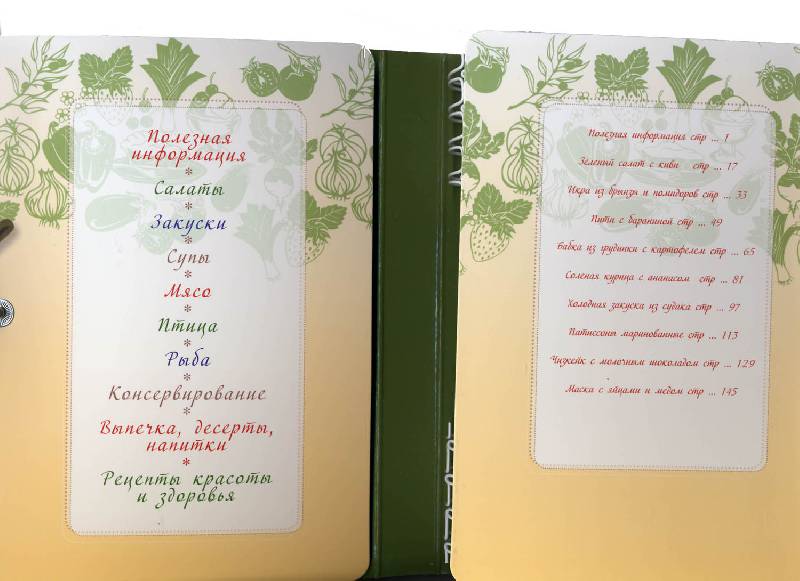 Полезная
информация
*
Салаты
*
Закуски
*
Супы
*
Мясо
*
Птица
*
Рыба
*
Консервирование
*
Выпечка, десерты,
напитки
*
Рецепты красоты
и здоровья
Полезная информация стр ... 1
Зеленый салат с киви стр ... 17
Икра из брынзы и помидоров стр ... 33
Пити с бараниной стр ... 49
Бабка из грудинки с картофелем стр ... 65
Соленая курица с ананасом стр ... 81
Холодная закуска из судака стр ... 97
Патиссоны маринованные стр ... 113
Чизкейк с молочным шоколадом стр ... 129
Маска с яйцами и медом стр ... 145